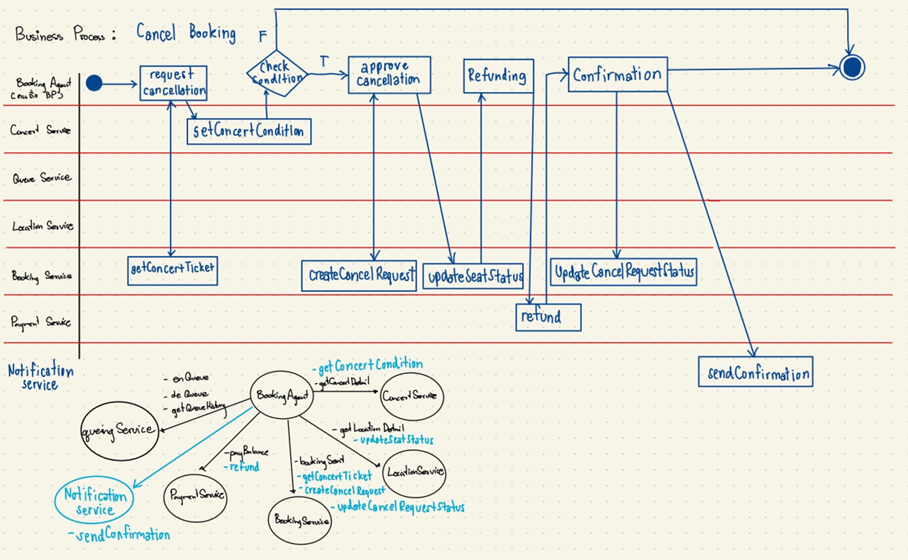 Business Process : Cancel Booking
F
T
request
cancellation
Check
Condition
approve
cancellation
Refunding
Confirmation
Booking Agent
Concert Service
setConcertCondition
Queue Service
Location Service
Booking Service
getConcertTicket
createCancelRequest
updateSeatStatus
UpdateCancelRequestStatus
Payment Service
refund
Notification
service
sendConfirmation
- enQueue
- de Queue
- getQueueHistory
BookingAgent
- getConcert Condition
- getConcertDetail
Concert Service
queing Service
- get Location Detail
- updateSeatStatus
- payBalance
- refund
- bookingSeat
- getConcertTicket
- createCancel Request
- updateCancelRequestStatus
LocationService
Notification
service
- sendConfirmation
PaymentService
BookingService